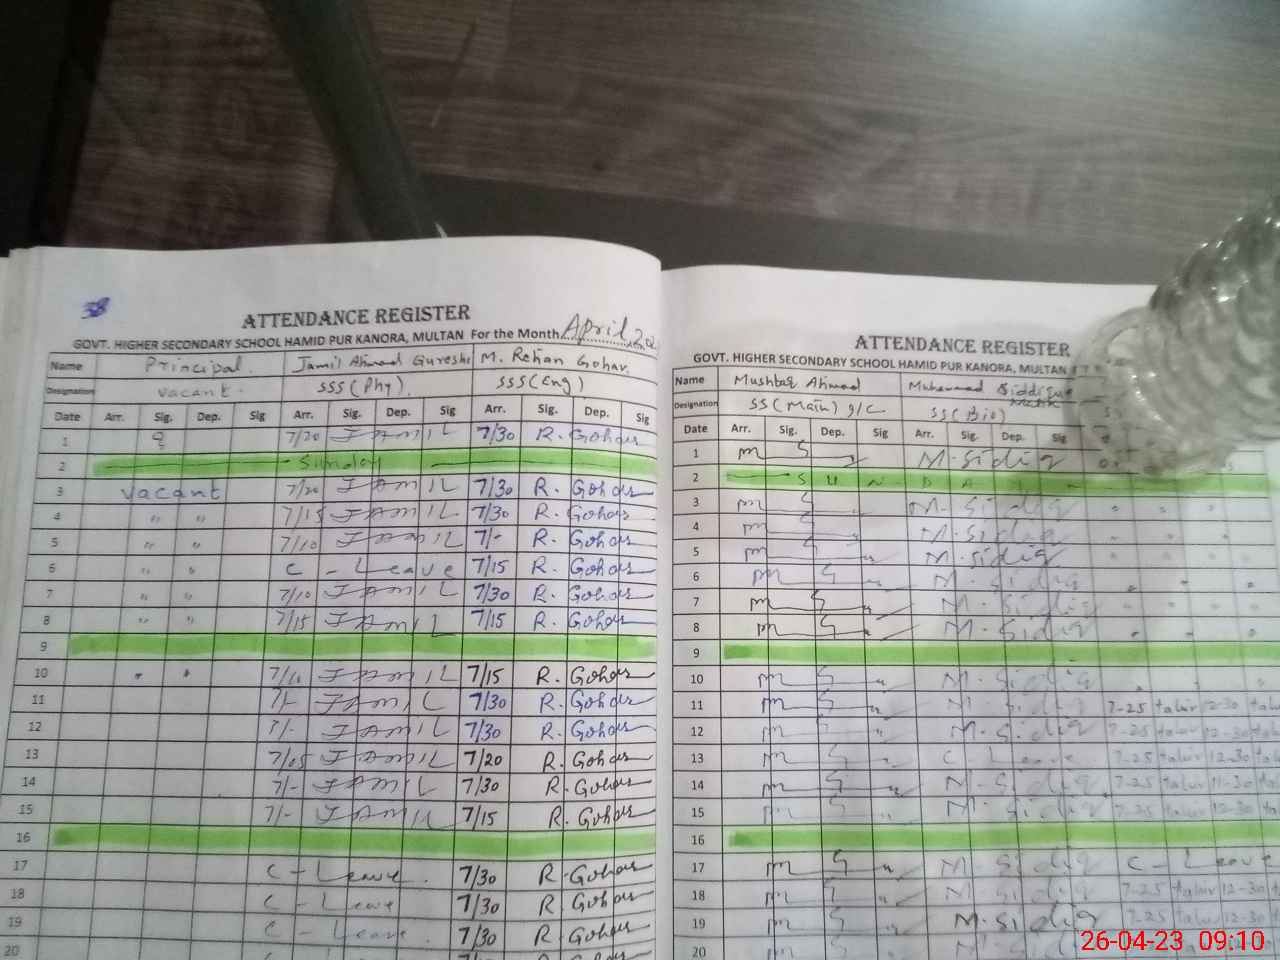 38
ATTENDANCE REGISTER
GOVT. HIGHER SECONDARY SCHOOL HAMID PUR KANORA, MULTAN For the Month April 20
Name Principal. Jamil Ahmad Qureshi M. Rehan Gohar.
Designation vacant. SSS(Phy). SSS(Eng)
Date Arr. Sig. Dep. Sig Arr. Sig. Dep. Sig Arr. Sig. Dep. Sig
1 7/20 JAMIL 7/30 R. Gohar
2 Sunday
3 vacant 7/20 JAMIL 7/30 R. Gohar
4 " " 7/15 JAMIL 7/30 R. Gohar
5 " " 7/10 JAMIL 7/- R. Gohar
6 " " C - Leave 7/15 R. Gohar
7 " " 7/10 JAMIL 7/30 R. Gohar
8 " " 7/15 JAMIL 7/15 R. Gohar
9
10 " " 7/10 JAMIL 7/15 R. Gohar
11 7/- JAMIL 7/30 R. Gohar
12 7/- JAMIL 7/30 R. Gohar
13 7/05 JAMIL 7/20 R. Gohar
14 7/- JAMIL 7/30 R. Gohar
15 7/- JAMIL 7/15 R. Gohar
16
17 C - Leave. 7/30 R. Gohar
18 C - Leave 7/30 R. Gohar
19 C - Leave. 7/30 R. Gohar
20
ATTENDANCE REGISTER
GOVT. HIGHER SECONDARY SCHOOL HAMID PUR KANORA, MULTAN F
Name Mushtaq Ahmad Muhammad Siddique
Designation SS(Math) I/C SS(Bio)
Date Arr. Sig. Dep. Sig Arr. Sig. Dep. Sig
1 M. Sidiq
2 SUNDAY
3 M. Sidiq
4 M. Sidiq
5 M. Sidiq
6 M. Sidiq
7 M. Sidiq
8 M. Sidiq
9
10 M. Sidiq
11 M. Sidiq 7-25 tahir 12-30
12 M. Sidiq 7-25 tahir 12-30
13 C - Leave 7-25 tahir 12-30
14 M. Sidiq 7-25 tahir 11-30
15 M. Sidiq 7-25 tahir 12-30
16
17 M. Sidiq C - Leave
18 M. Sidiq 7-25 tahir 12-30
19 M. Sidiq 7-25 tahir 12-30
20 M. Sidiq
26-04-23 09:10